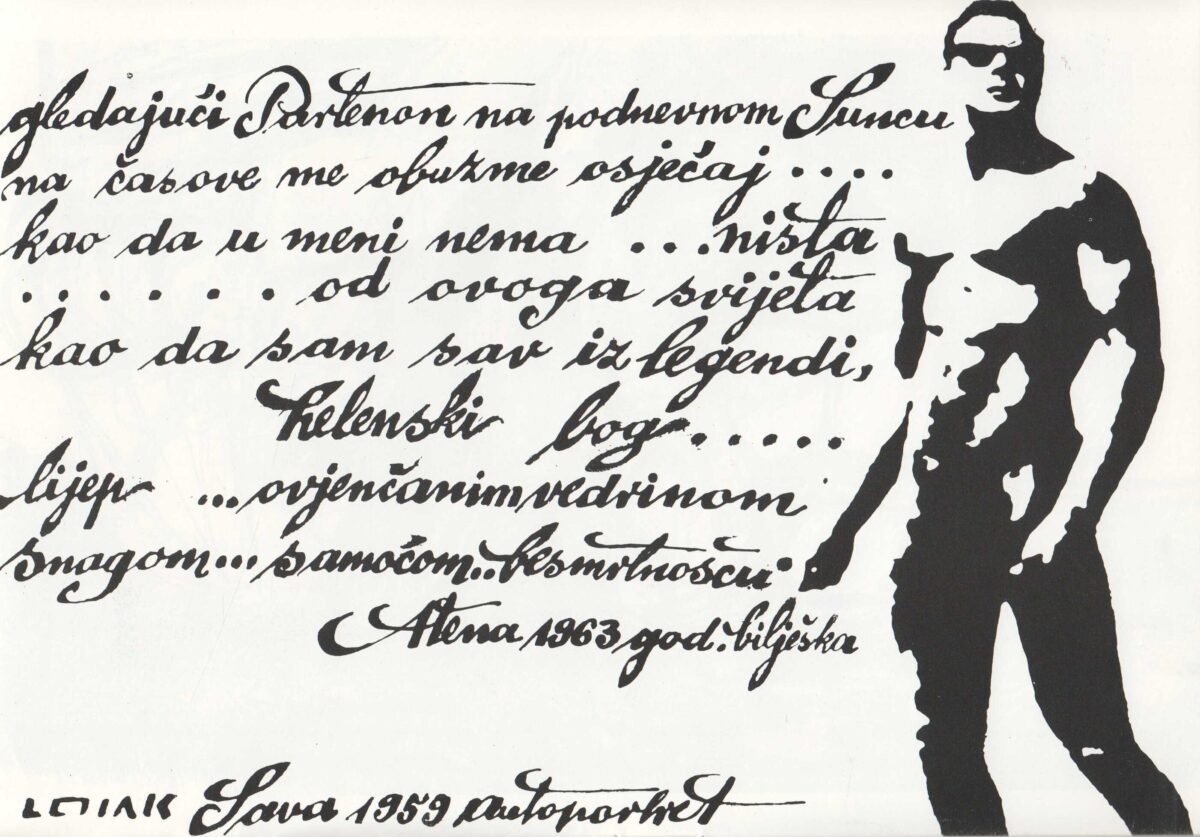 gledajuči Partenon na podnevnom Suncu
na časove me obuzme osječaj ....
kao da u meni nema ...ništa
. . . . . . od ovoga svijeta
kao da sam sav iz legendi,
helenski bog.....
lijep ...ovjenčanim vedrinom
snagom...samočom..besmrtnošču
Atena 1963 god. bilješka
Sava 1959 autoportret